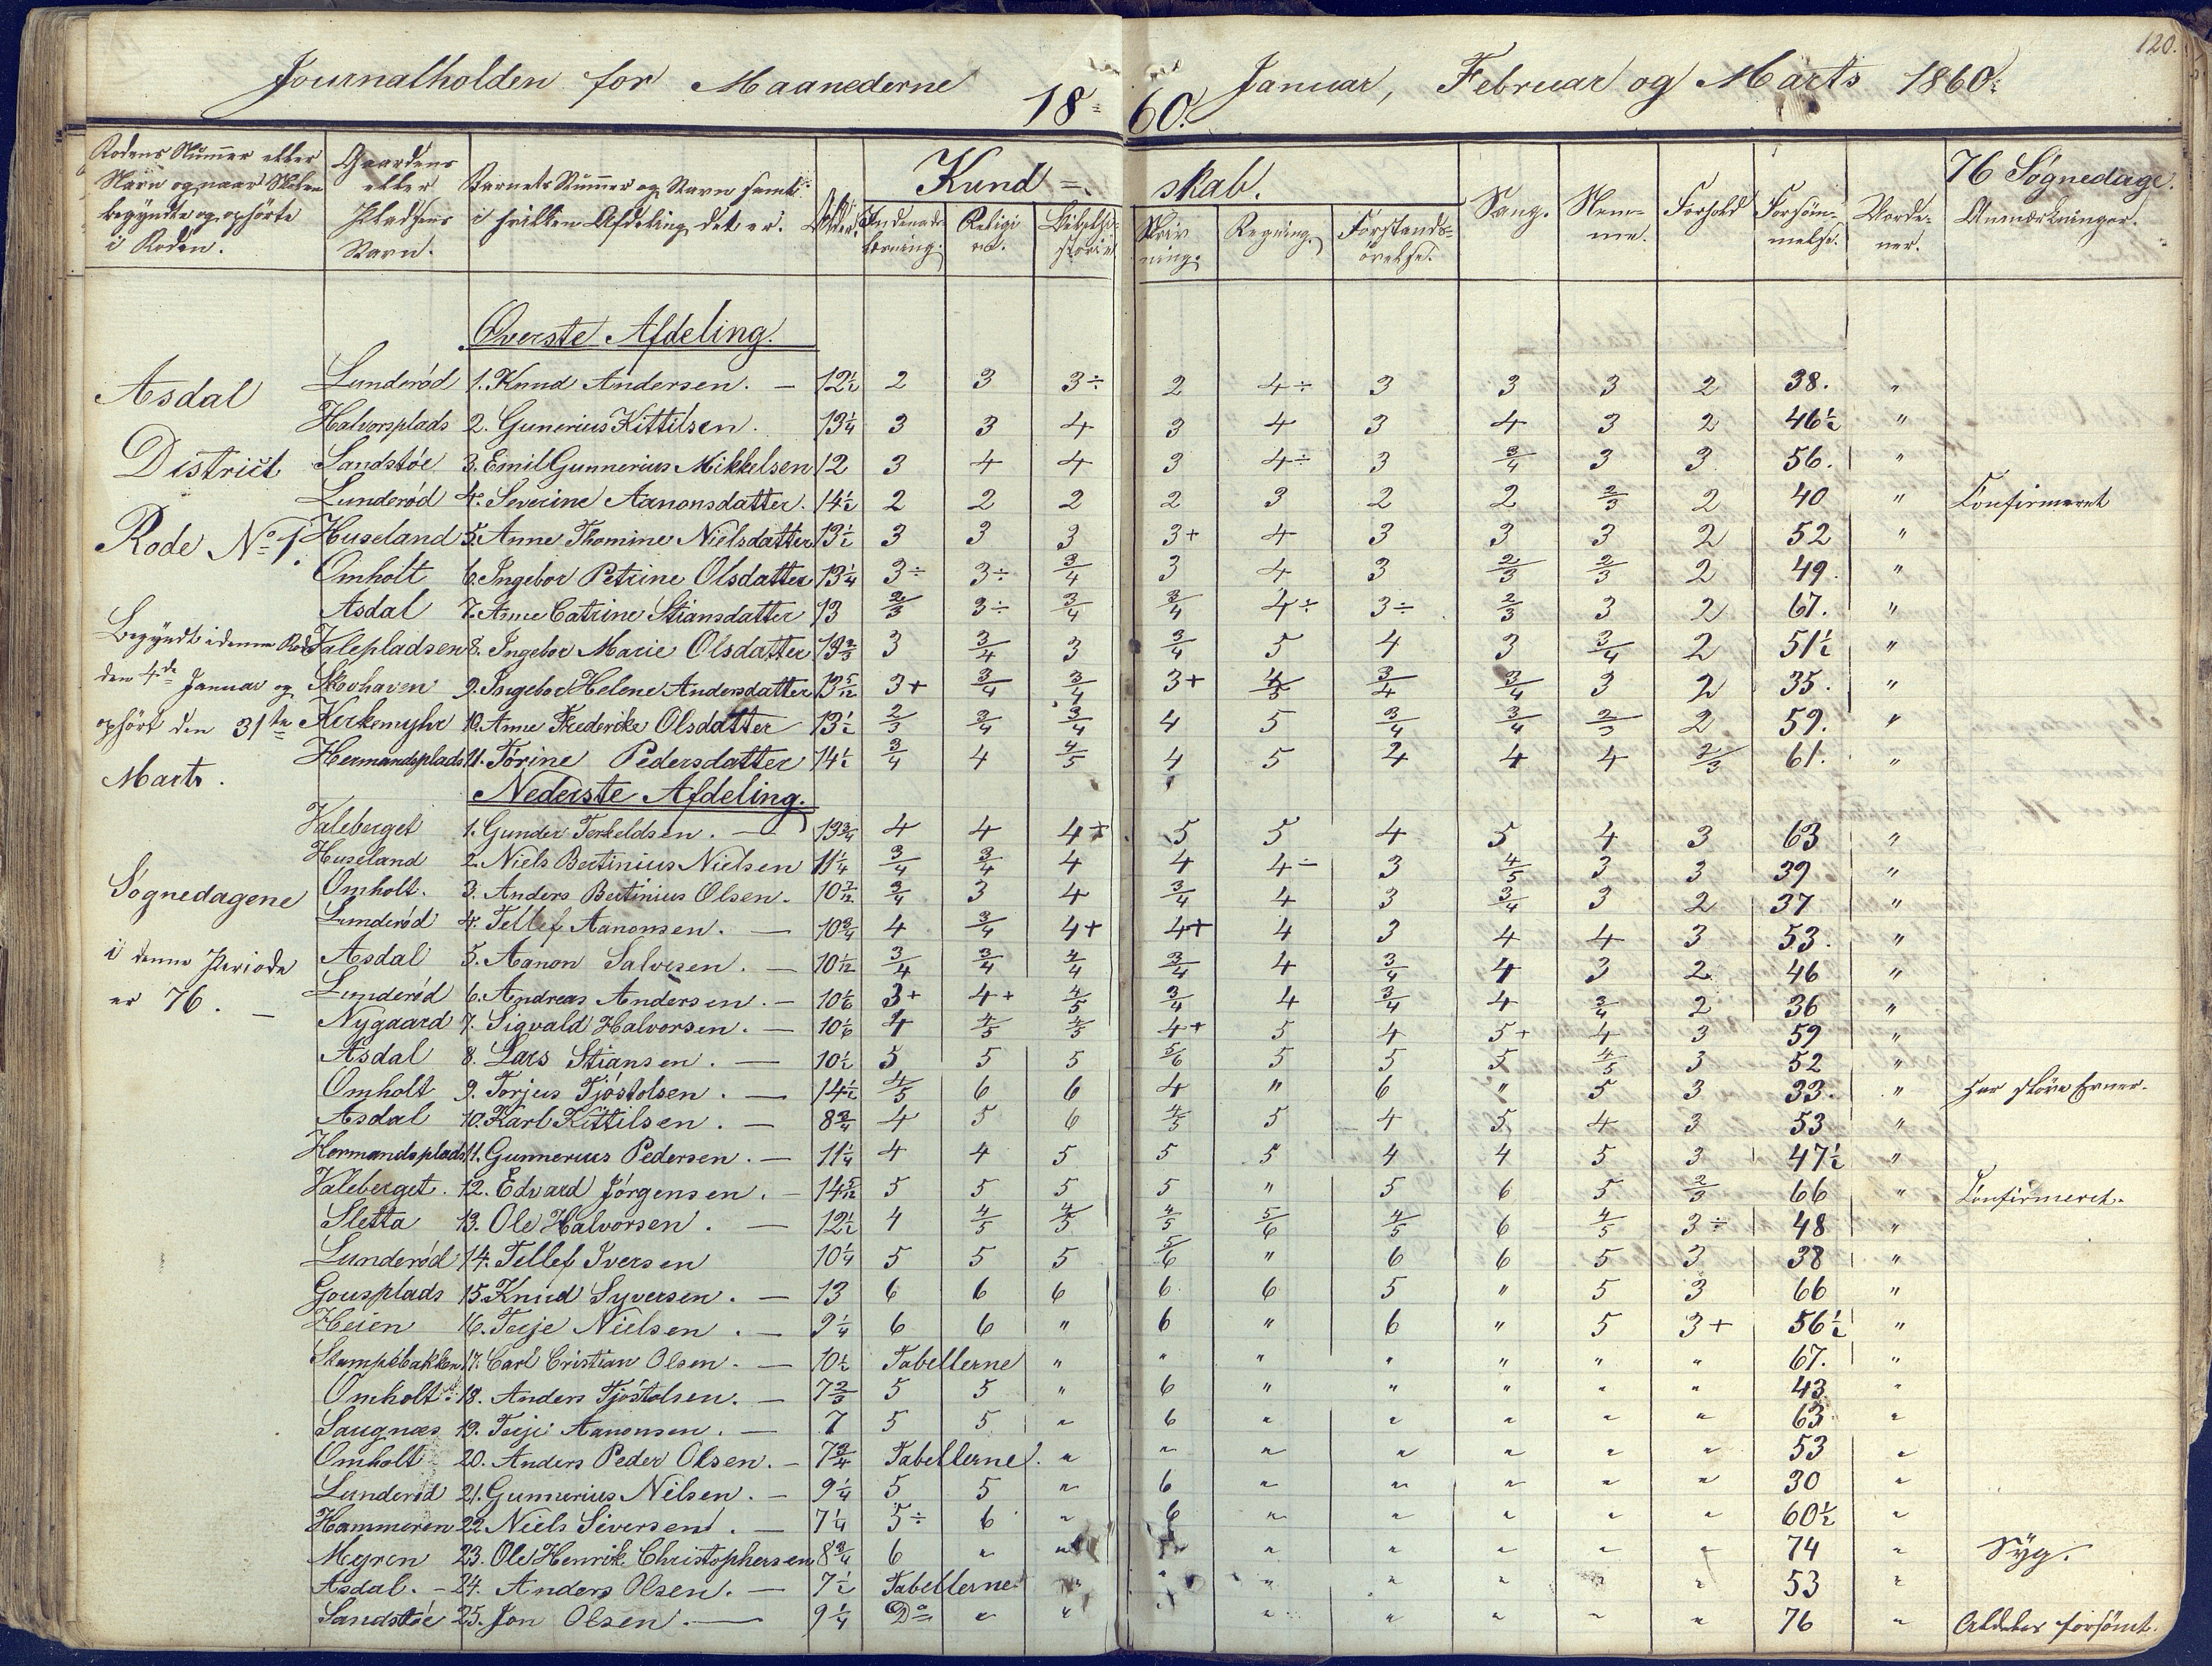 120.
Journalholden for Maanederne Januar, Februar og Marts 1860.
18 60.
Rodens Nummer eller Navn og naar Skolen begyndte og ophörte i Roden. | Gaardens eller Pladsens Navn. | Barnets Nummer og Navn samt i hvilken Afdeling det er. | Alder. | Kundskab. | Sang. | Nemme. | Forhold | Forsömmelse. | Vordener. | 76 Søgnedage. Anmærkninger.
Indenadslæsning. | Religion. | Bibelhistorie | Skrivning. | Regning. | Forstandsövelse.
Asdal
District
Rode No 1.
Begyndt i denne Rode
den 4de Januar og
ophört den 31te
Marts.
Søgnedagene
i denne Periode
er 76. –
Overste Afdeling.
Lunderöd 1. Knud Andersen. – 12½ 2 3 3÷ 2 4÷ 3 3 3 2 38. "
Halvorsplads 2. Gunerius Kittilsen. 13¼ 3 3 4 3 4 3 4 3 2 46½ "
Sandstöe 3. Emil Gunnerius Mikkelsen 12 3 4 4 3 4÷ 3 3/4 3 3 56. "
Lunderöd 4. Severine Aanonsdatter. 14½ 2 2 2 2 3 2 2 2/3 2 40 " Confirmeret
Huseland 5. Anne Thomine Nielsdatter 13½ 3 3 3 3+ 4 3 3 3 2 52 "
Omholt 6. Ingebor Petrine Olsdatter 13¼ 3÷ 3÷ 3/4 3 4 3 2/3 2/3 2 49. "
Asdal 7. Anne Catrine Stiansdatter 13 2/3 3÷ 3/4 3/4 4÷ 3÷ 2/3 3 2 67. "
Valepladsen 8. Ingebor Marie Olsdatter 13⅔ 3 3/4 3 3/4 5 4 3 3/4 2 51½ "
Skovhaven 9. Ingebor Helene Andersdatter 13 5/12 3+ 3/4 3/4 3+ 4/5 3/4 3/4 3 2 35. "
Kirkemyhr 10. Anne Frederike Olsdatter 13½ 2/3 3/4 3/4 4 5 3/4 3/4 2/3 2 59. "
Hermandsplads 11. Törine Pedersdatter 14½ 3/4 4 4/5 4 5 4 4 4 2/3 61. "
Nederste Afdeling.
Valeberget 1. Gunder Terkeldsen. – 13¾ 4 4 4+ 5 5 4 5 4 3 63 "
Huseland 2. Niels Bertinius Nielsen 11¼ 3/4 3/4 4 4 4÷ 3 4/5 3 3 39 "
Omholt. 3. Anders Bertinius Olsen. 10 7/12 3/4 3 4 3/4 4 3 3/4 3 2 37 "
Lunderöd 4. Tellef Aanonsen. – 10¾ 4 3/4 4+ 4+ 4 3 4 4 3 53. "
Asdal 5. Aanon Salvesen. – 10 1/12 3/4 3/4 4/4 3/4 4 3/4 4 3 2 46 "
Lunderöd 6. Andreas Andersen. – 10⅙ 3+ 4+ 4/5 3/4 4 3/4 4 3/4 2 36 "
Nygaard 7. Sigvald Halvorsen. – 10⅙ 4 4/5 4/5 4+ 5 4 5+ 4 3 59 "
Asdal 8. Lars Stiansen. – 10½ 5 5 5 5/6 5 5 5 4/5 3 52 "
Omholt 9. Torjus Tjöstolsen. – 14½ 4/5 6 6 4 " 6 " 5 3 33. " Har slöve Evner.
Asdal 10. Karl Kittilsen. – 8¾ 4 5 6 4/5 5 4 5 4 3 53 "
Hermandsplads 11. Gunnerius Pedersen. – 11¼ 4 4 5 5 5 4 4 5 3 47½ "
Valeberget. 12. Edvard Jörgensen. – 14 5/12 5 5 5 5 " 5 6 5 2/3 66 " Confirmeret.
Sletta 13. Ole Halvorsen. – 12½ 4 4/5 4/5 4/5 5/6 4/5 6 4/5 3÷ 48 "
Lunderöd 14. Tellef Iversen 10¼ 5 5 5 5/6 " 6 6 5 3 38 "
Gousplads 15. Knud Syversen. – 13 6 6 6 6 6 5 " 5 3 66 "
Heien 16. Terje Nielsen. – 9¼ 6 6 " 6 " 6 " 5 3+ 56½ "
Stampebakken 17. Carl Cristian Olsen. – 10½ Tabellerne " " " " " " " 67. "
Omholt 18. Anders Tjöstolsen. – 7⅔ 5 5 " 6 " " " " " 43. "
Saugnæs 19. Terje Aanonsen. – 7 5 5 " 6 " " " " " 63 "
Omholt 20. Anders Peder Olsen. – 7¾ Tabellerne. " " " " " " " 53 "
Lunderöd 21. Gunnerius Nilsen. – 9¼ 5 5 " 6 " " " " " 30 "
Hammeren 22. Niels Siversen. – 7¼ 5÷ 6 " 6 " " " " " 60½ "
Myren 23. Ole Henrik Christophersen 8¾ 6 " " " " " " " 74 " Syg.
Asdal. – 24. Anders Olsen. – 7½ Tabellerne " " " " " " " 53
Sandstöe 25. Jon Olsen. – 9¼ Do " " " " " " " " 76 " Aldeles forsömt.